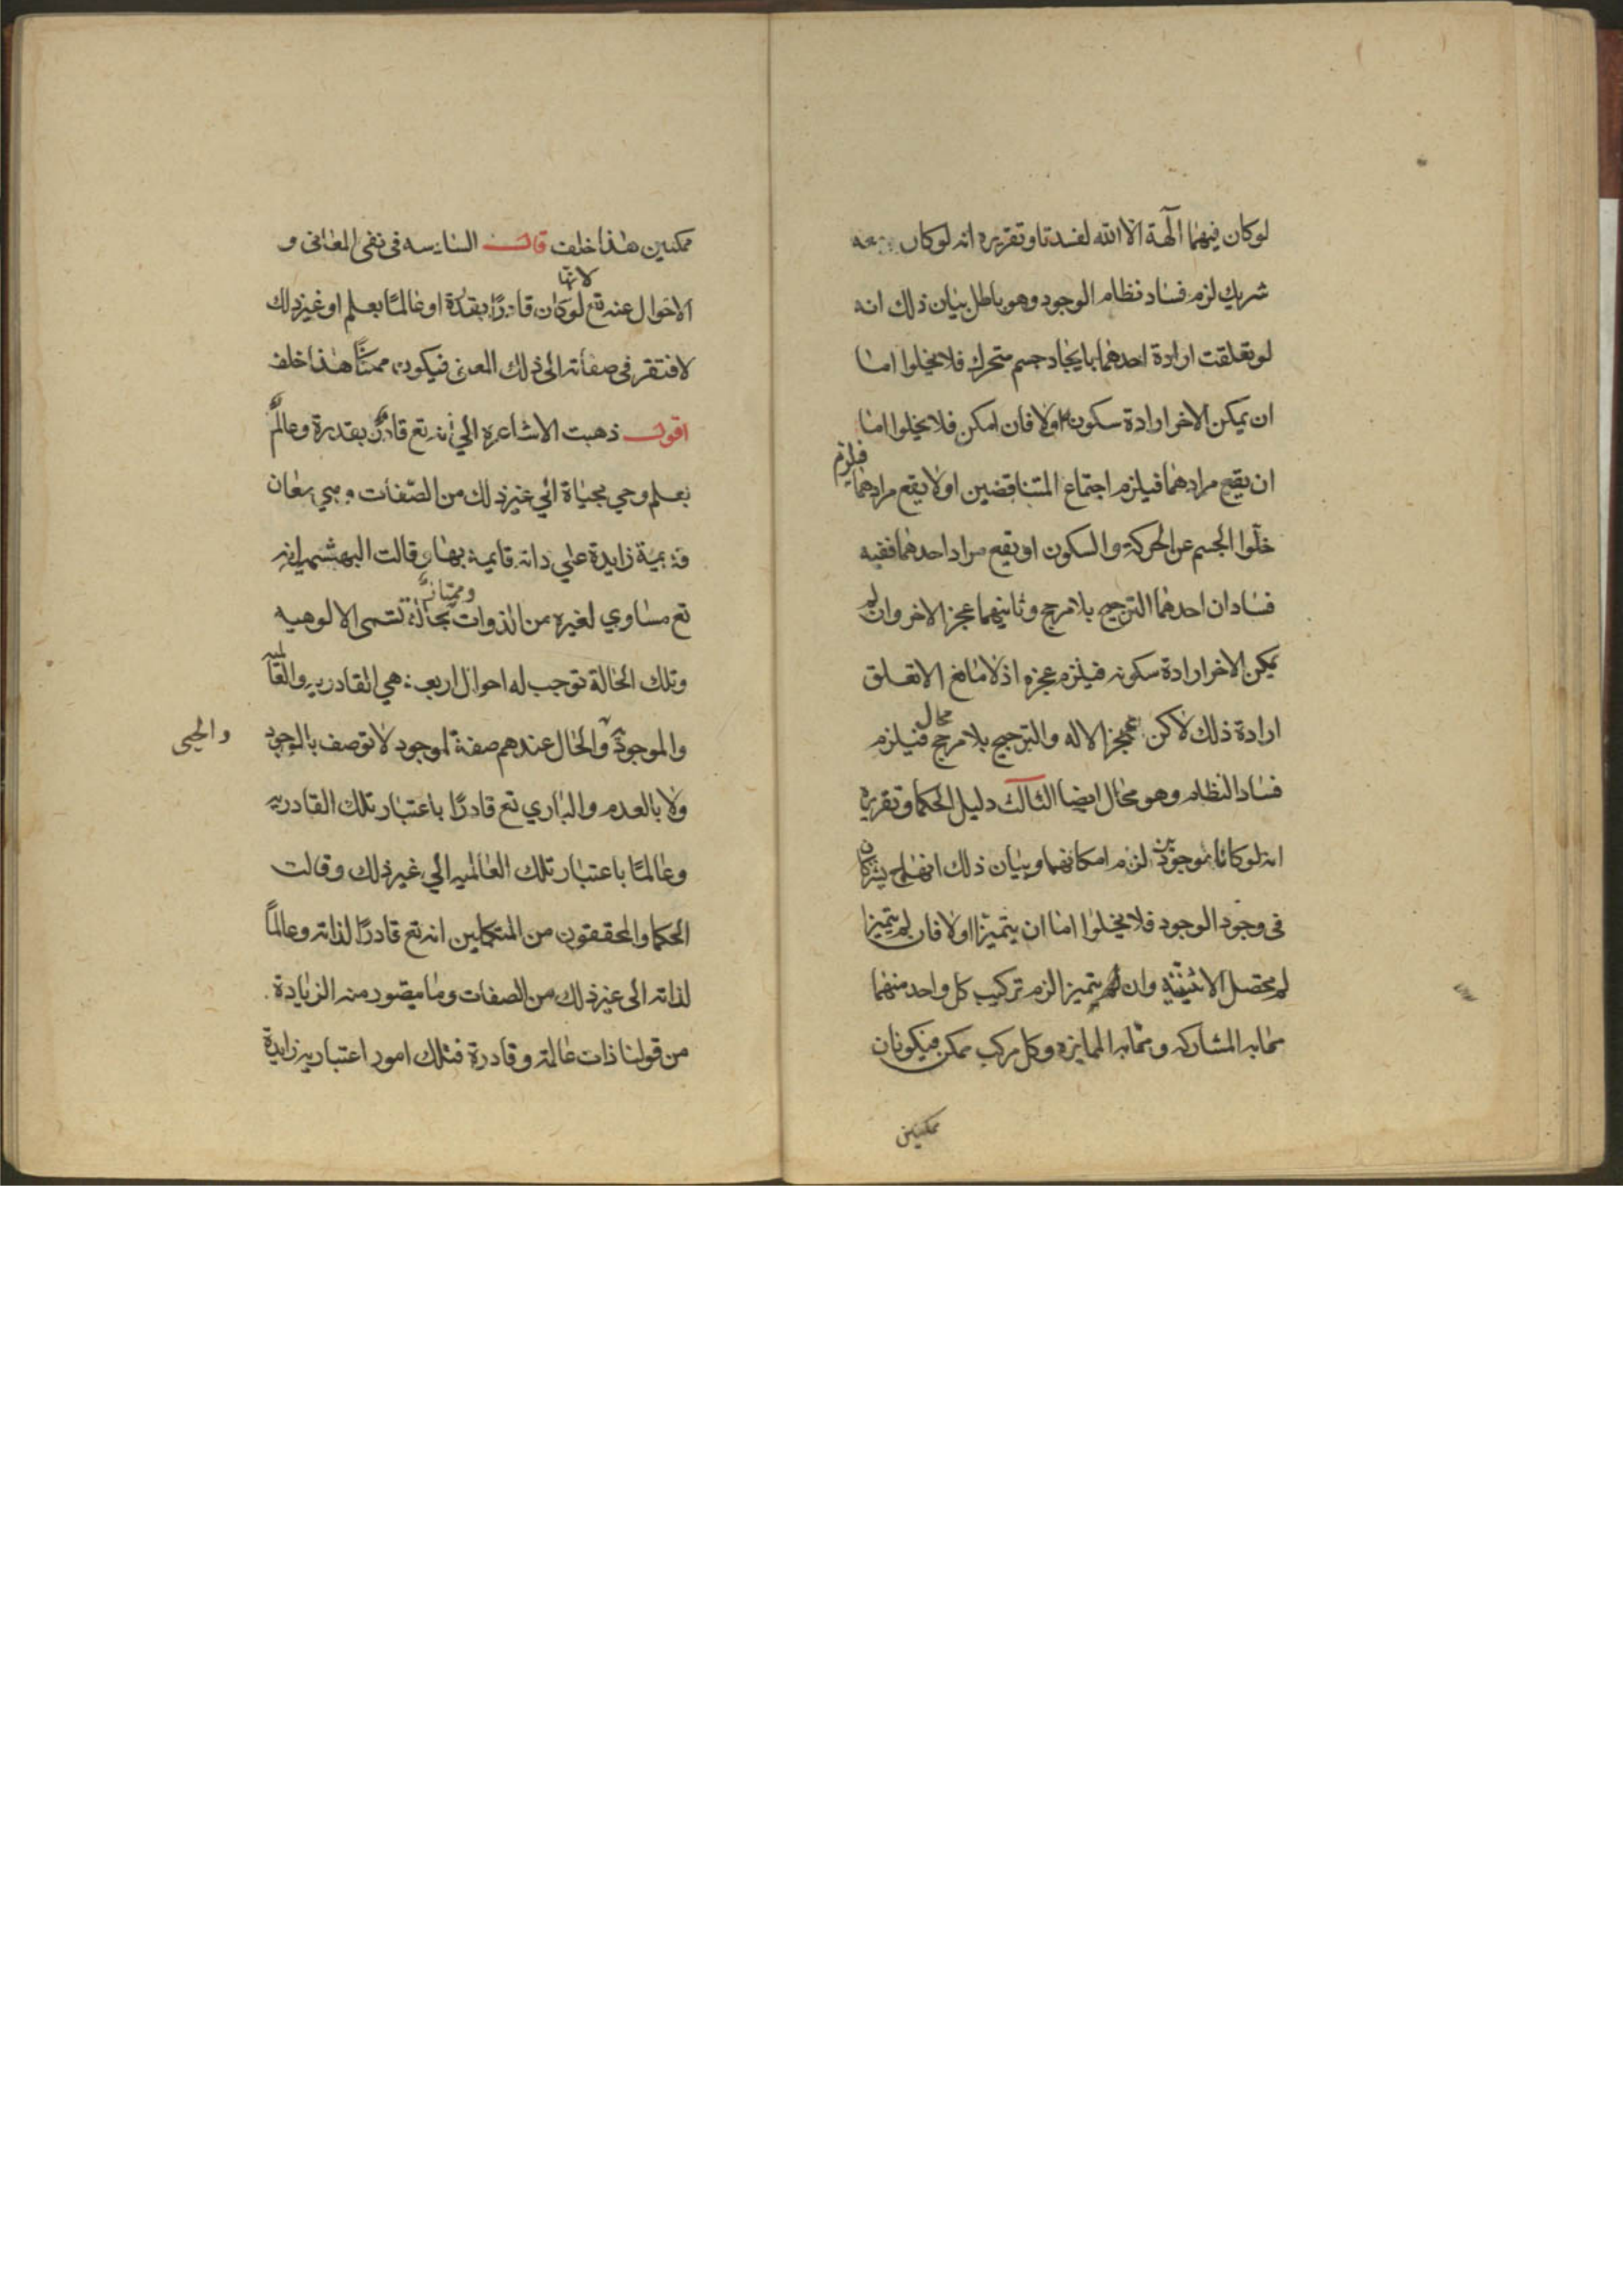 لوكان فيهما آلهة الا الله لفسدتا وتقريره انه لوكان معه
شريك لزم فساد نظام الوجود وهو باطل بيان ذلك انه
لو تعلقت ارادة احدهما بايجاد جسم متحرك فلا يخلوا اما
ان يمكن الاخر ارادة سكونه اولا فان امكن فلا يخلوا اما
ان يقع مرادهما فيلزم اجتماع المتناقضين اولا يقع مرادهما فيلزم
خلّوا الجسم عن الحركة والسكون او يقع مراد احدهما ففيه
فسادان احدهما الترجيح بلا مرجح وثانيهما عجز الاخر وان لم
يمكن الاخر ارادة سكونه فيلزم عجزه اذ لا مانع الا تعلق
ارادة ذلك لاكن عجز الاله والترجيح بلا مرجح محال فيلزم
فساد النظام وهو محال ايضا الثالث دليل الحكما وتقريره
انه لو كانا موجودين لزم امكانهما وبيان ذلك انهما ح يشتركان
فى وجود الوجود فلا يخلوا اما ان يتميزا اولا فان لم يتميزا
لم يحصل الاثنينية وان لم يتميزا لزم تركيب كل واحد منهما
مما به المشاركه ومما به الممايزه وكل مركب ممكن فيكونان
ممكنين
ممكنين هذا خلف قال السادسه فى نفى المعانى و
الاحوال عنه تع لانها لو كان قادرًا بقدرة او عالمًا بعلم او غير ذلك
لافتقر فى صفاته الى ذلك المعنى فيكون ممكنًا هذا خلف
اقول ذهبت الاشاعره الي انه تع قادرٌ بقدرة وعالمٌ
بعلم وحي بحياة الي غير ذلك من الصّفات وهي معان
قديمية زايدة علي ذاته قايمة بها وقالت البهشمية انه
تع مساوي لغيره من الذوات وممتاز بحالة تسمى الالوهيه
وتلك الحالة توجب له احوال اربعة هي القادريه والعالميه
والموجوديه والحال عندهم صفة لموجود لا توصف بالوجود
والحيى
ولا بالعدم والباري تع قادرًا باعتبار تلك القادريه
وعالمًا باعتبار تلك العالميه الي غير ذلك وقالت
الحكما والمحققون من المتكملين انه تع قادرًا لذاته وعالمًا
لذاته الى غير ذلك من الصفات وما ميصور منه الزيادة
من قولنا ذات عالمة وقادرة فتلك امور اعتباريه زايدة